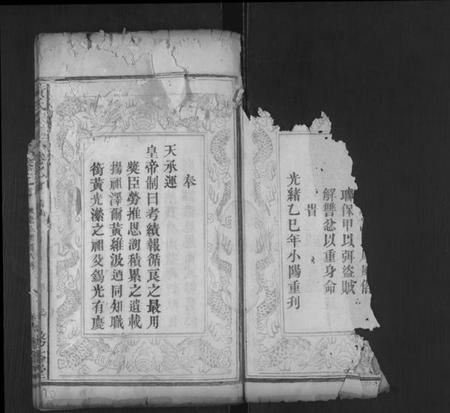 聯保甲以弭盜賊
解讐忿以重身命
光緒乙巳年小陽重刋
奉
天承運
皇帝制曰考績報循良之最用
獎臣勞推恩溯積累之遺載
揚祖澤爾黃維汲迺同知職
銜黃光瀠之祖父錫光有慶